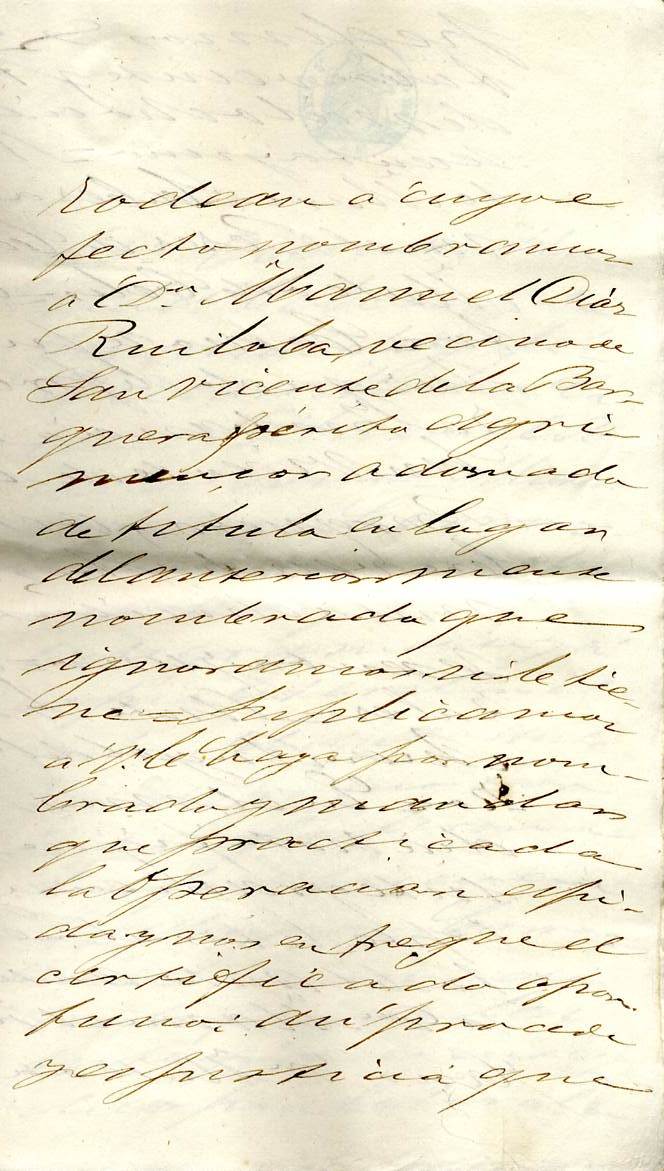 rodean a cuyo e
fecto nombramos
a Dn Manuel Diáz
Ruiloba, vecino de
San Vicente de la Bar-
quera périto Agri-
mensor adornado
de titulo en lugar
del anteriormente
nombrado que
ignoramos si le tie-
ne = Suplicamos
a V. le haya por nom-
brado y mandar
que practicada
la operacion espi-
da y nos entregue el
certificado opor-
tuno: asi procede
y es justicia que